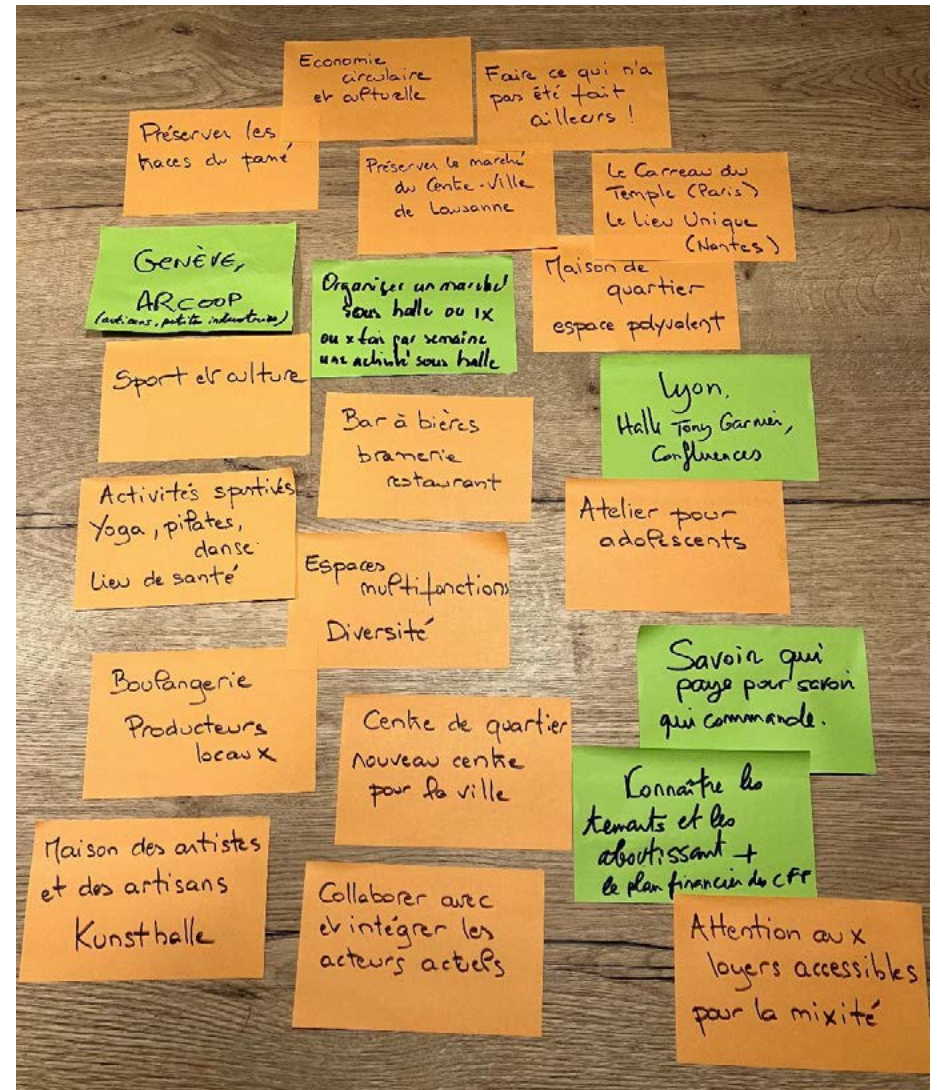 Economie
circulaire
et culturelle
Faire ce qui n'a
pas été fait
ailleurs !
Préserver les
traces du passé
Préserver le marché
du Centre-Ville
de Lausanne
Le Carreau du
Temple (Paris)
Le Lieu Unique
(Nantes)
GENÈVE,
ARCOOP
(artisans, petites industries)
Organiser un marché
sous halle ou 1x
ou x fois par semaine
une activité sous halle
Maison de
quartier
espace polyvalent
Sport et culture
Bar à bières
brasserie
restaurant
Lyon,
Halle Tony Garnier,
Confluences
Activités sportives
Yoga, pilates,
danse
Lieu de santé
Atelier pour
adolescents
Espaces
multifonctions
Diversité
Boulangerie
Producteurs
locaux
Savoir qui
paye pour savoir
qui commande.
Centre de quartier
nouveau centre
pour la ville
Connaître les
tenants et les
aboutissant +
le plan financier des CFF
Maison des artistes
et des artisans
Kunsthalle
Collaborer avec
et intégrer les
acteurs actuels
Attention aux
loyers accessibles
pour la mixité